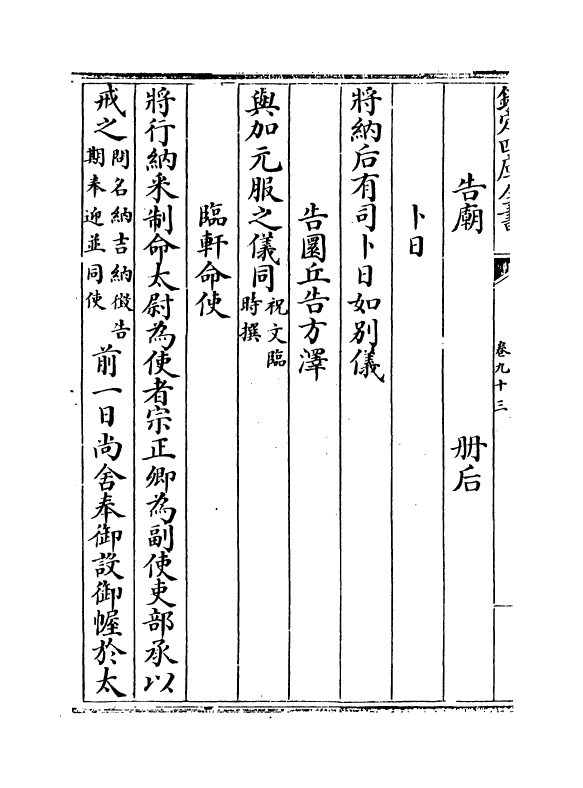 欽定四庫全書
卷九十三
告廟 册后
卜日
將納后有司卜日如别儀
告圜丘告方澤
與加元服之儀同祝文臨時撰
臨軒命使
將行納采制命太尉為使者宗正卿為副使吏部承以
戒之問名納吉納徴告期奉迎並同使前一日尚舍奉御設御幄於太